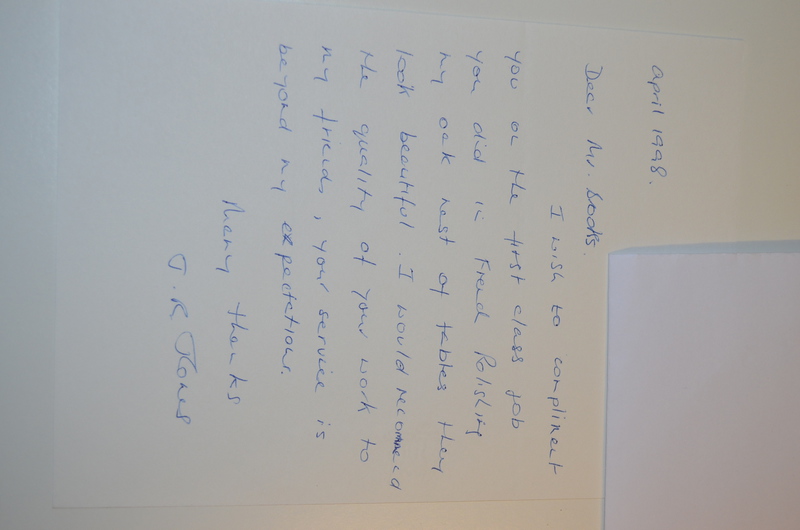 April 1998.
Dear Mr. Sooks.
I wish to compliment
you on the first class job
you did in Frend Polishing
my oak nest of tables they
look beautiful. I would recommend
the quality of your work to
my friends, your service is
beyond my expectations.
Many thanks
J. R. Jones